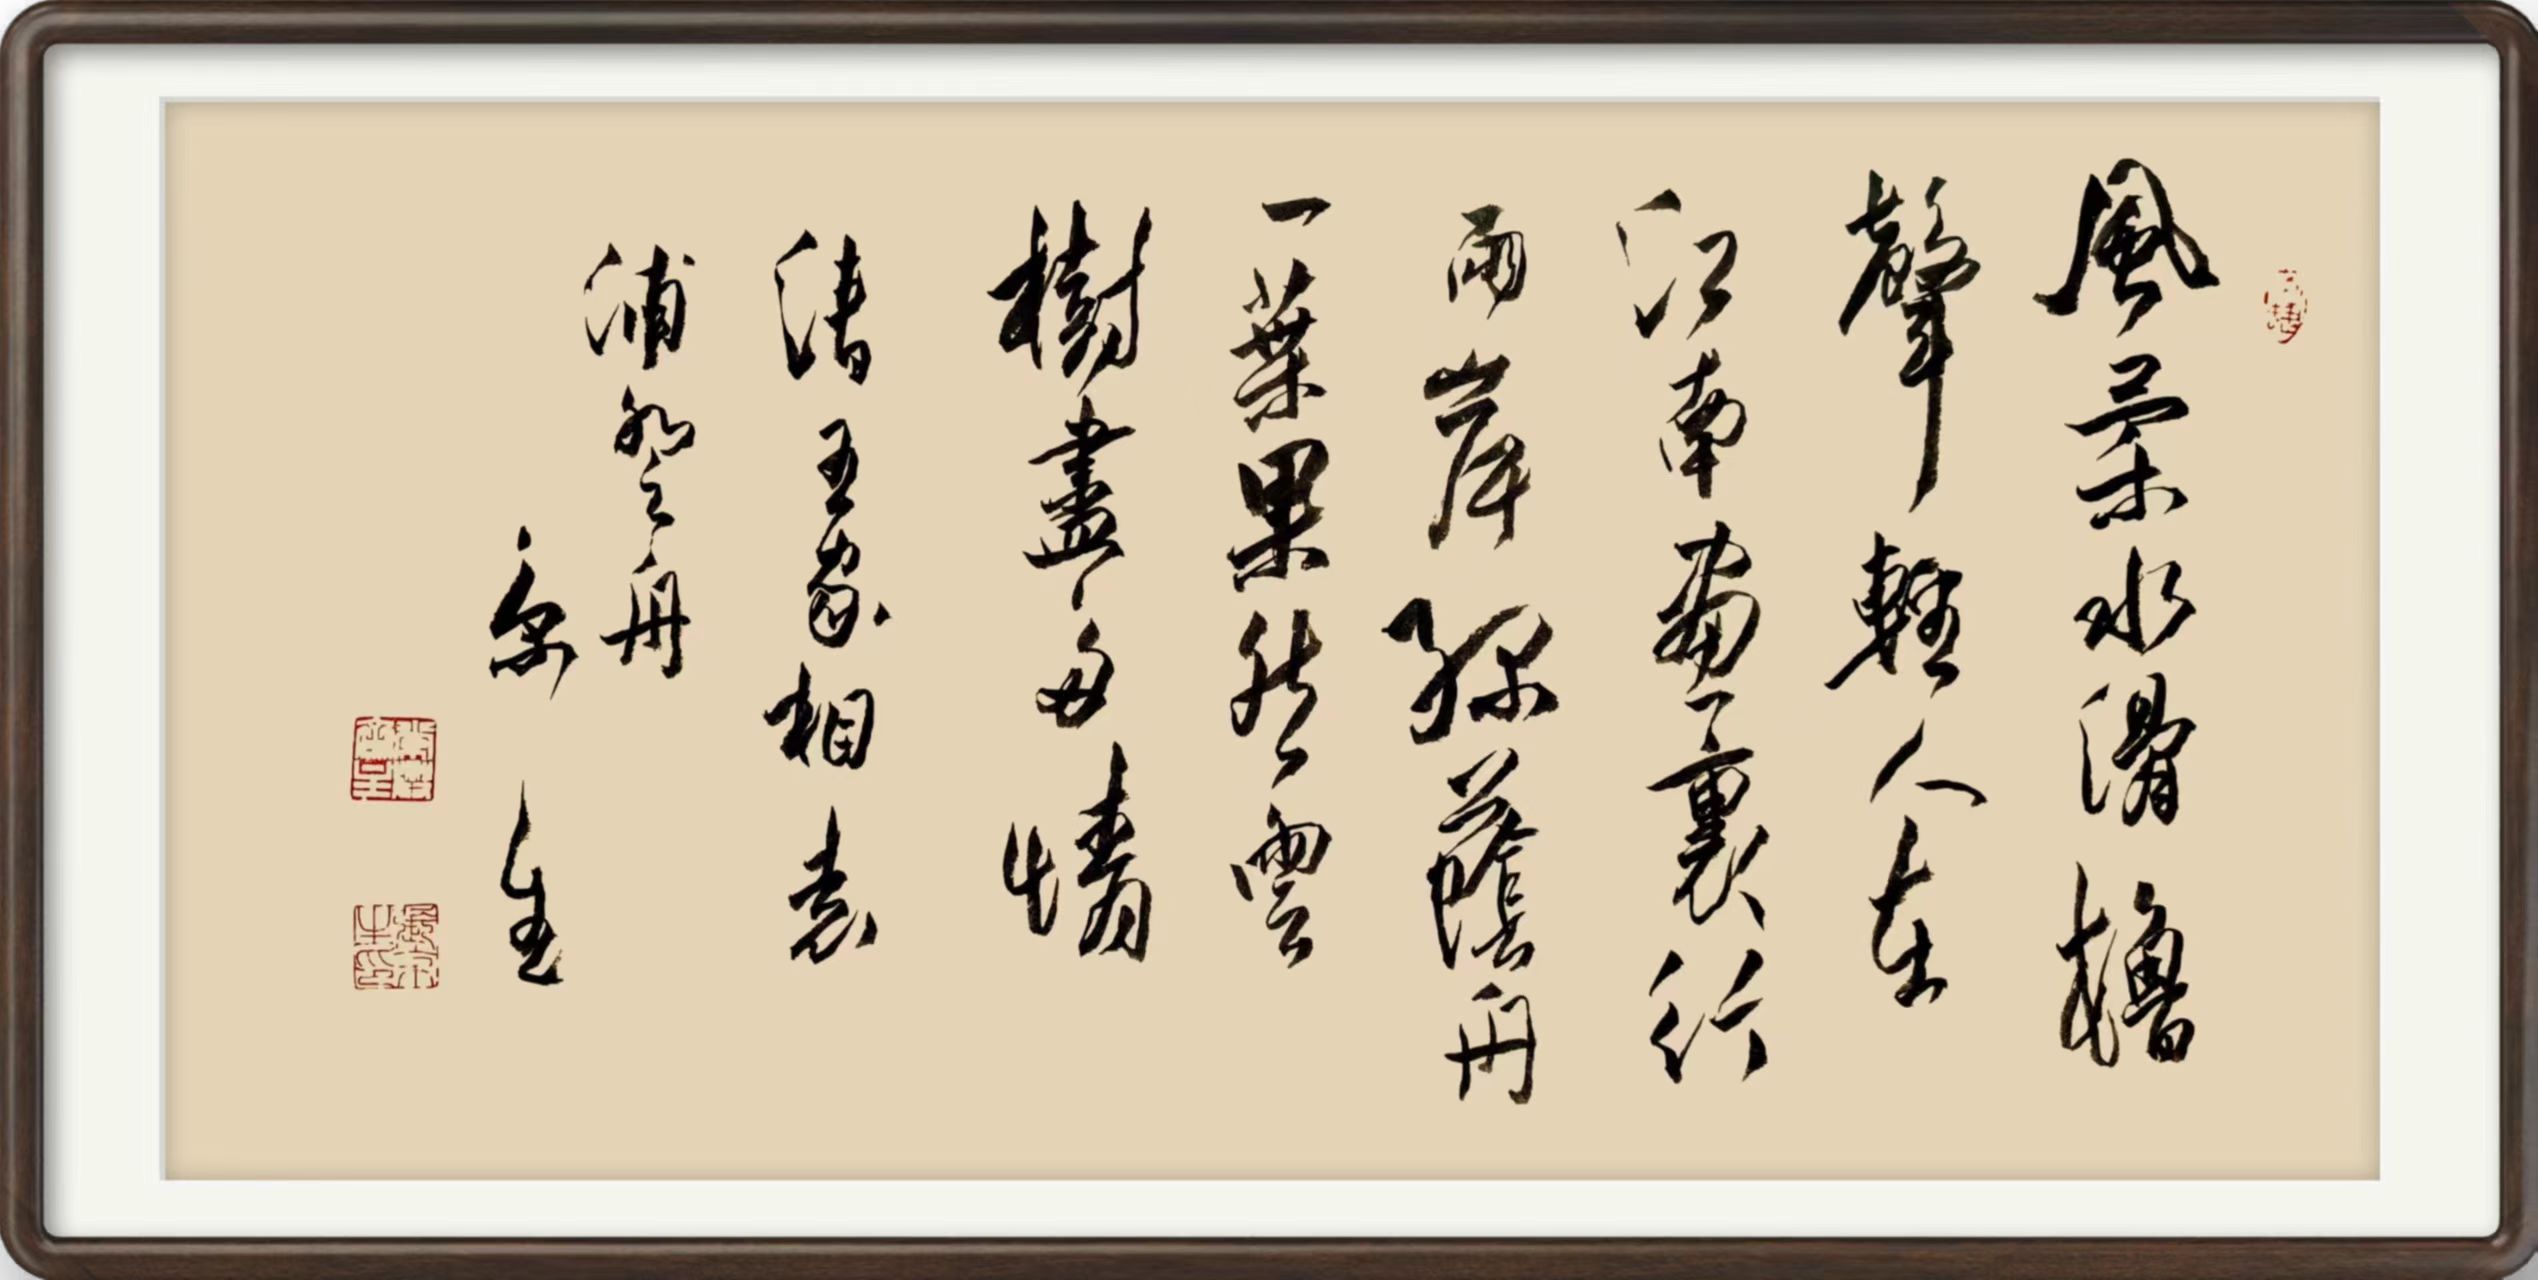 風柔水滑櫓
聲輕人在
江南畫裏行
兩岸綠蔭舟
一葉果然雲
樹盡多情
清王家相袁
浦登舟
生